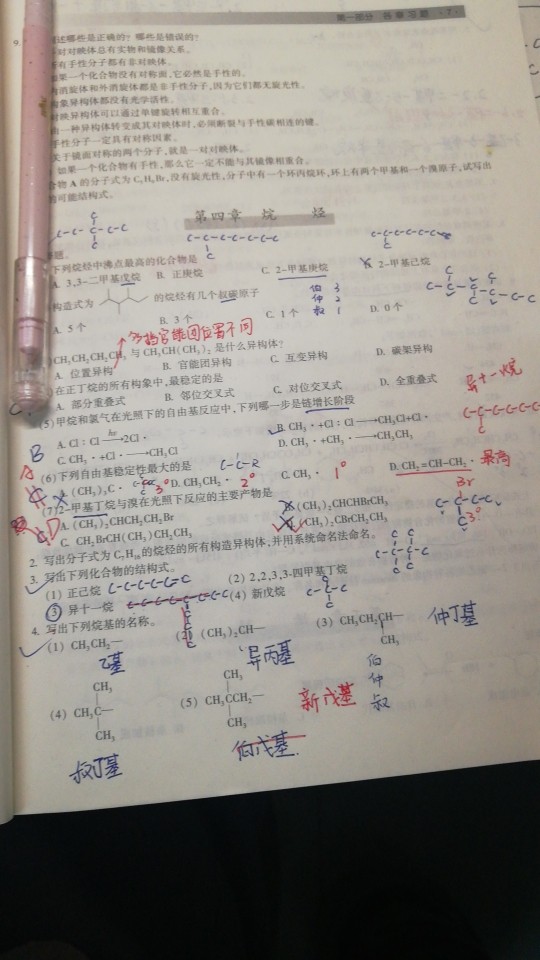 第一部分 各章习题 ·7·
9. 述哪些是正确的?哪些是错误的?
对对映体总有实物和镜像关系。
有手性分子都有非对映体。
如果一个化合物没有对称面,它必然是手性的。
消旋体和外消旋体都是非手性分子,因为它们都无旋光性。
构象异构体都没有光学活性。
对映异构体可以通过单键旋转相互重合。
由一种异构体转变成其对映体时,必须断裂与手性碳相连的键。
手性分子一定具有对称因素。
关于镜面对称的两个分子,就是一对对映体。
如果一个化合物有手性,那么它一定不能与其镜像相重合。
合物 A 的分子式为 C₅H₉Br,没有旋光性,分子中有一个环丙烷环,环上有两个甲基和一个溴原子,试写出
的可能结构式。
第四章 烷 烃
C-C-C-C-C
C-C-C-C-C-C-C
C-C-C-C-C-C
题。
下列烷烃中沸点最高的化合物是
A. 3,3-二甲基戊烷 B. 正庚烷 C. 2-甲基庚烷 D. 2-甲基己烷
构造式为 的烷烃有几个叔碳原子
伯 3
仲 2
叔 1
A. 5个 B. 3个 C. 1个 D. 0个
多指官能团位置不同
CH₃CH₂CH₂CH₃ 与 CH₃CH(CH₃)₂ 是什么异构体?
A. 位置异构 B. 官能团异构 C. 互变异构 D. 碳架异构
在正丁烷的所有构象中,最稳定的是
A. 部分重叠式 B. 邻位交叉式 C. 对位交叉式 D. 全重叠式
异十一烷
(5) 甲烷和氯气在光照下的自由基反应中,下列哪一步是链增长阶段
A. Cl:Cl —hν→ 2Cl· B. CH₃·+Cl:Cl → CH₃Cl+Cl·
C. CH₃·+Cl· → CH₃Cl D. CH₃·+CH₃· → CH₃CH₃
B
A (6) 下列自由基稳定性最大的是 C-C-R
A. (CH₃)₃C· 3° B. CH₃CH₂· 2° C. CH₃· 1° D. CH₂=CH-CH₂· 最高
(7) 2-甲基丁烷与溴在光照下反应的主要产物是
A. (CH₃)₂CHCH₂CH₂Br B. (CH₃)₂CHCHBrCH₃
C. CH₂BrCH(CH₃)CH₂CH₃ D. (CH₃)₂CBrCH₂CH₃
Br
C-C-C-C
C 3°
2. 写出分子式为 C₇H₁₆ 的烷烃的所有构造异构体,并用系统命名法命名。
3. 写出下列化合物的结构式。
(1) 正己烷 C-C-C-C-C-C (2) 2,2,3,3-四甲基丁烷
③ 异十一烷 (4) 新戊烷
4. 写出下列烷基的名称。
(1) CH₃CH₂— (2) (CH₃)₂CH— (3) CH₃CH₂CH—
CH₃
乙基 异丙基 仲丁基
伯
仲
叔
CH₃ CH₃
(4) CH₃C— (5) CH₃CCH₂— 新戊基
CH₃ CH₃
叔丁基 伯戊基.